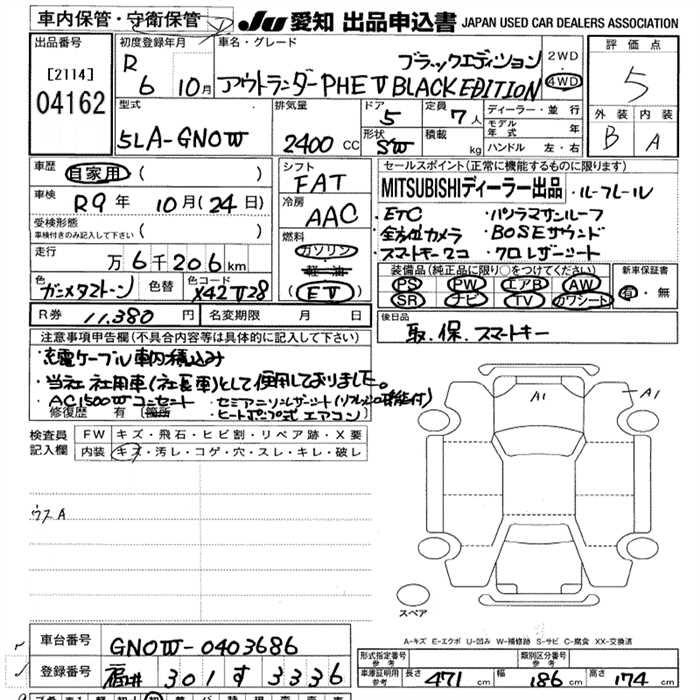 車内保管・守衛保管
JU 愛知 出品申込書 JAPAN USED CAR DEALERS ASSOCIATION
出品番号
[2114]
04162
初度登録年月
R 6 10月
車名・グレード
ブラックエディション
アウトランダーPHEV BLACK EDITION
2WD
4WD
評価点
5
外装 内装
B A
型式
5LA-GN0W
排気量
2400 CC
ドア
5
形状
SW
定員
7人
積載
kg
ディーラー・並行
モデル年式 年
ハンドル 左・右
車歴
自家用 ( )
車検
R9年 10月(24日)
受検形態
車検付きのみ記入して下さい ( )
走行
万 6千206km
色
ガンメタストーン
色替
色コード
X42 V28
シフト
FAT
冷房
AAC
燃料
ガソリン
軽油
(EV)
セールスポイント(正常に機能するものに限ります)
MITSUBISHIディーラー出品 ・ルーフレール
・ETC ・パノラマサンルーフ
・全方位カメラ ・BOSEサウンド
・スマートキー2コ ・クロレザーシート
装備品(純正品に限り○をつけてください)
PS PW エアB AW
SR ナビ TV カワシート
新車保証書
有・無
R券 11,380円
名変期限 月 日
後日品
取.保.スマートキー
注意事項申告欄(不具合内容等は具体的に記入して下さい)
・充電ケーブル車内積込み
・当社社用車(社長車)として使用しておりました。
・AC1500Wコンセント ・セミアニリンレザーシート(リフレッシュ機能付)
修復歴 有 (箇所) ・ヒートポンプ式エアコン)
検査員記入欄
FW キズ・飛石・ヒビ割・リペア跡・X要
内装 キズ・汚レ・コゲ・穴・スレ・キレ・破レ
ウスA
A1
A1
スペア
A-キズ E-エクボ U-凹み W-補修跡 S-サビ C-腐食 XX-交換済
車台番号
GN0W-0403686
登録番号
福井 301 す 3336
形式指定番号
参考
類別区分番号
参考
車庫証明用
参考
長さ 471 cm
幅 186 cm
高さ 174 cm